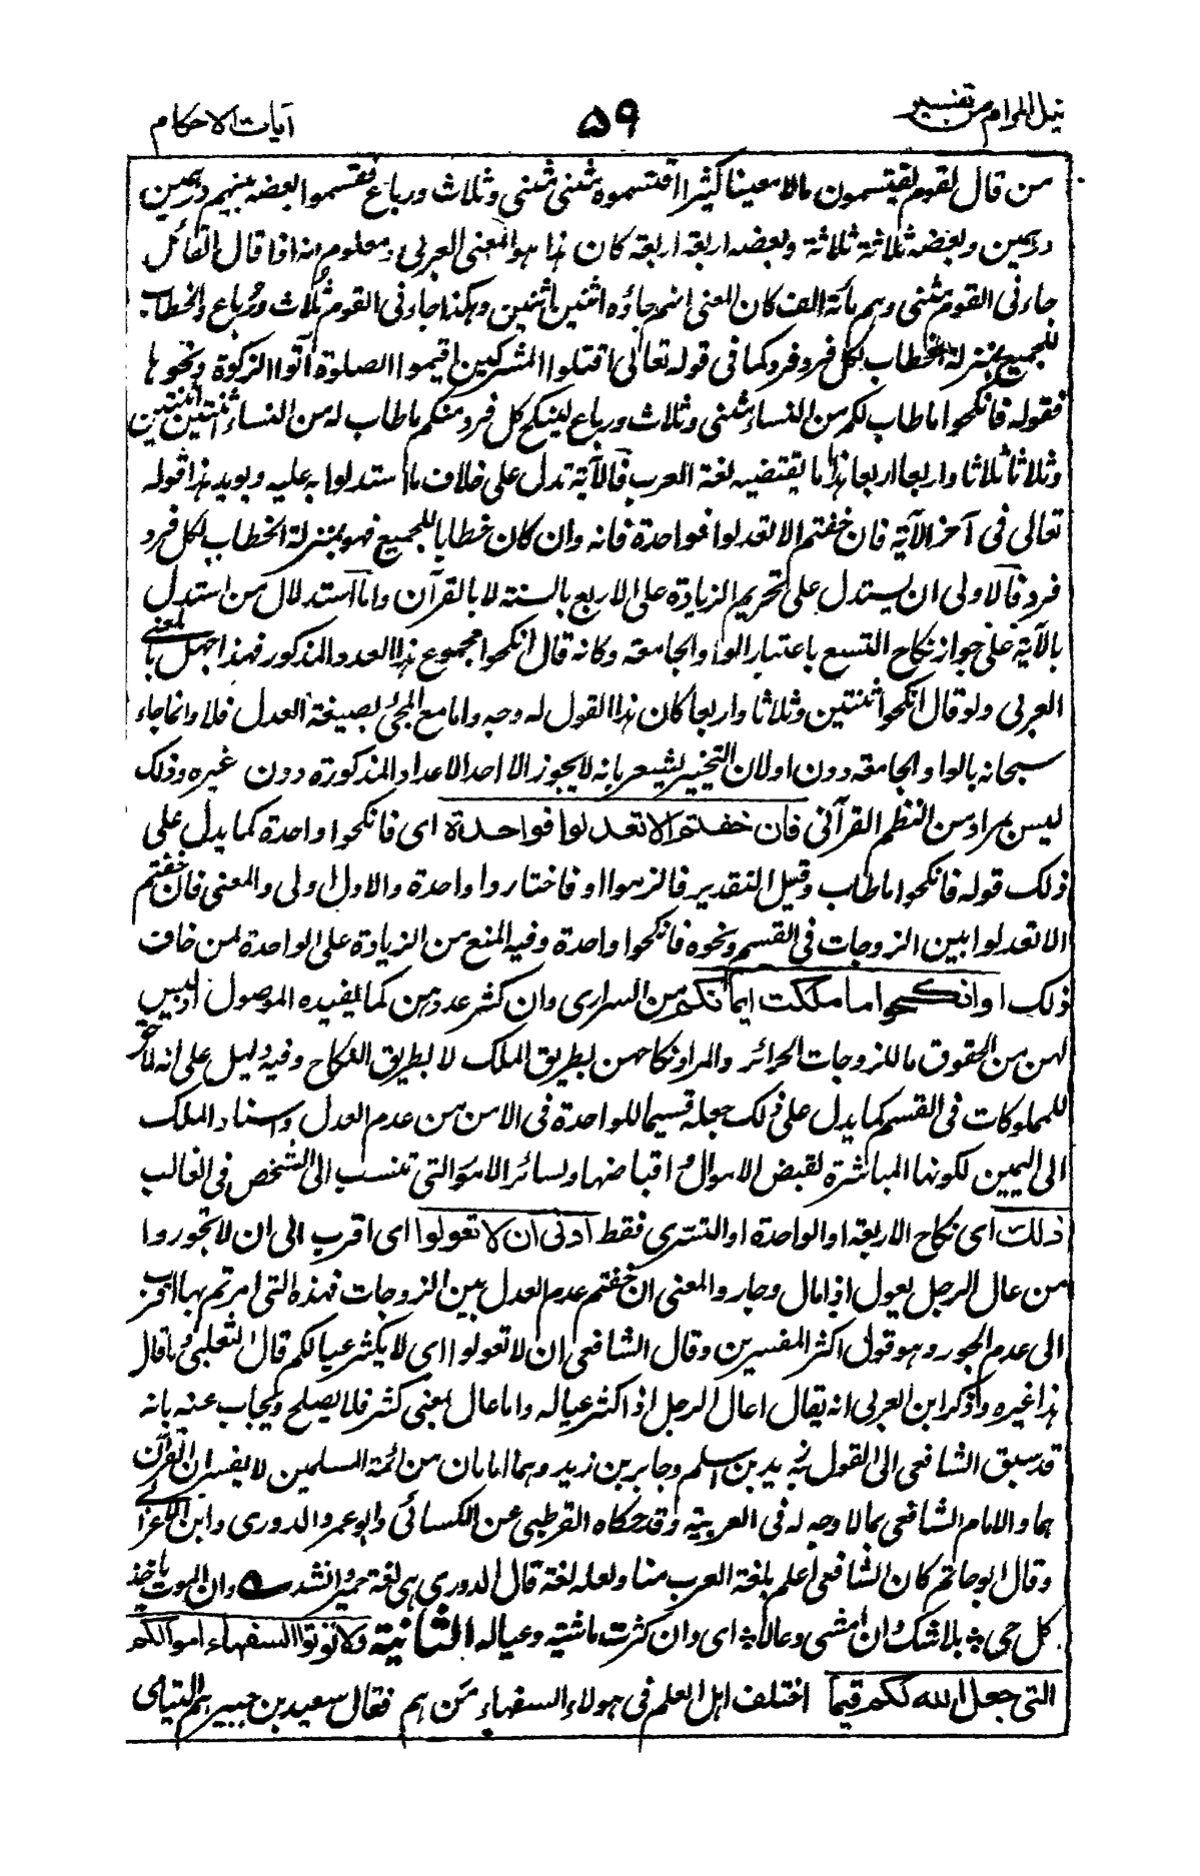 نيل المرام من تفسير
٥٩
آيات الاحكام
من قال لقوم يقتسمون مالا معينا كثيرا اقتسموه مثنى مثنى وثلاث ورباع فقسموا بعضه بينهم درهمين
درهمين وبعضه ثلاثة ثلاثة وبعضه اربعة اربعة كان هذا هو المعنى العربي ومعلوم انه اذا قال القائل
جاءني القوم مثنى وهم مائة الف كان المعنى انهم جاؤه اثنين اثنين وهكذا جاءني القوم ثلاث ورباع والخطاب
للجميع بمنزلة الخطاب لكل فرد فرد كما في قوله تعالى اقتلوا المشركين اقيموا الصلوة آتوا الزكوة ونحوها
فقوله فانكحوا ما طاب لكم من النساء مثنى وثلاث ورباع لينكح كل فرد منكم ما طاب له من النساء اثنتين اثنتين
وثلاثا ثلاثا واربعا اربعا هذا ما يقتضيه لغة العرب فالآية تدل على خلاف ما استدلوا به عليه ويويد هذا قوله
تعالى في آخر الآية فان خفتم الا تعدلوا فواحدة فانه وان كان خطابا للجميع فهو بمنزلة الخطاب لكل فرد
فرد فالاولى ان يستدل على تحريم الزيادة على الاربع بالسنة لا بالقرآن واما استدلال من استدل
بالآية على جواز نكاح التسع باعتبار الواو الجامعة وكانه قال انكحوا مجموع هذا العدد المذكور فهذا جهل بالمعنى
العربي ولو قال انكحوا اثنتين وثلاثا واربعا كان هذا القول له وجه واما مع المجئ بصيغة العدل فلا وانما جاء
سبحانه بالواو الجامعة دون او لان التخيير يشعر بانه لا يجوز الا احد الاعداد المذكورة دون غيره وذلك
ليس بمراد من النظم القرآني فان خفتم الا تعدلوا فواحدة اى فانكحوا واحدة كما يدل على
ذلك قوله فانكحوا ما طاب وقيل التقدير فالزموا او فاختاروا واحدة والاول اولى والمعنى فان خفتم
الا تعدلوا بين الزوجات في القسم ونحوه فانكحوا واحدة وفيه المنع من الزيادة على الواحدة لمن خاف
ذلك او انكحوا ما ملكت ايمانكم من السراري وان كثر عددهن كما يفيده الموصول اذ ليس
لهن من الحقوق ما للزوجات الحرائر والمراد نكاحهن بطريق الملك لا بطريق النكاح وفيه دليل على انه لا حق
للمملوكات في القسم كما يدل على ذلك جعله قسيما للواحدة في الامن من عدم العدل واسناد الملك
الى اليمين لكونها المباشرة لقبض الاموال واقباضها ولسائر الامور التي تنسب الى الشخص في الغالب
ذلك اى نكاح الاربعة او الواحدة او التسري فقط ادنى ان لا تعولوا اى اقرب الى ان لا تجوروا
من عال الرجل يعول اذا مال وجار والمعنى ان خفتم عدم العدل بين الزوجات فهذه التي امرتم بها اقرب
الى عدم الجور وهو قول اكثر المفسرين وقال الشافعي ان لا تعولوا اى لا يكثر عيالكم قال الثعلبي وما قال
هذا غيره وذكر ابن العربي انه يقال اعال الرجل اذا كثر عياله واما عال بمعنى كثر فلا يصلح ويجاب عنه بانه
قد سبق الشافعي الى القول به زيد بن اسلم وجابر بن زيد وهما امامان من ائمة المسلمين لا يفسران القرآن
هما والامام الشافعي بما لا وجه له في العربية وقد حكاه القرطبي عن الكسائي وابو عمر والدوري وابن الاعرابي
وقال ابو حاتم كان الشافعي اعلم بلغة العرب منا ولعله لغة قال الدوري هي لغة حمير وانشد وان الموت ياخذ
كل حي بلا شك وان امشى وعالا اى وان كثرت ماشيته وعياله الثانية ولا تؤتوا السفهاء اموالكم
التي جعل الله لكم قيما اختلف اهل العلم في هولاء السفهاء من هم فقال سعيد بن جبير هم اليتامى